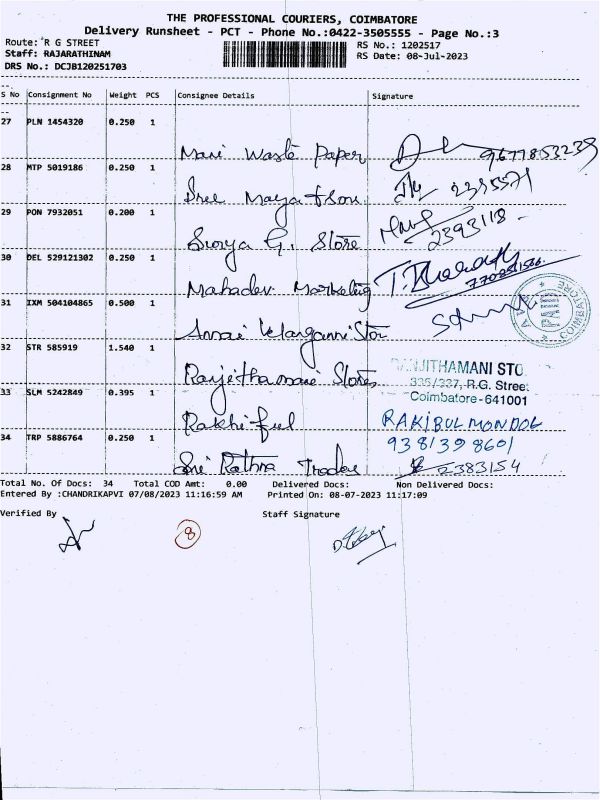 THE PROFESSIONAL COURIERS, COIMBATORE
Delivery Runsheet - PCT - Phone No.:0422-3505555 - Page No.:3
Route: R G STREET
Staff: RAJARATHINAM
DRS No.: DCJB120251703
RS No.: 1202517
RS Date: 08-Jul-2023
S No Consignment No Weight PCS Consignee Details Signature
27 PLN 1454320 0.250 1
Mani Waste Paper 9677853239
28 MTP 5019186 0.250 1
Sree Maya & Son 2395571
29 PON 7932051 0.200 1
Surya G. Store 2393118
30 DEL 529121302 0.250 1
Mahadev Marketing
31 IXM 504104865 0.500 1
Annai Velanganni Stor
COIMBATORE
32 STR 585919 1.540 1
Ranjithamani Stores
ANJITHAMANI STO
335/337, R.G. Street
Coimbatore-641001
33 SLM 5242849 0.395 1
Rakhiful RAKIBUL MONDOL
9381398601
34 TRP 5886764 0.250 1
Sri Rathna Trades 2383154
Total No. Of Docs: 34 Total COD Amt: 0.00 Delivered Docs: Non Delivered Docs:
Entered By :CHANDRIKAPVI 07/08/2023 11:16:59 AM Printed On: 08-07-2023 11:17:09
Verified By Staff Signature
8